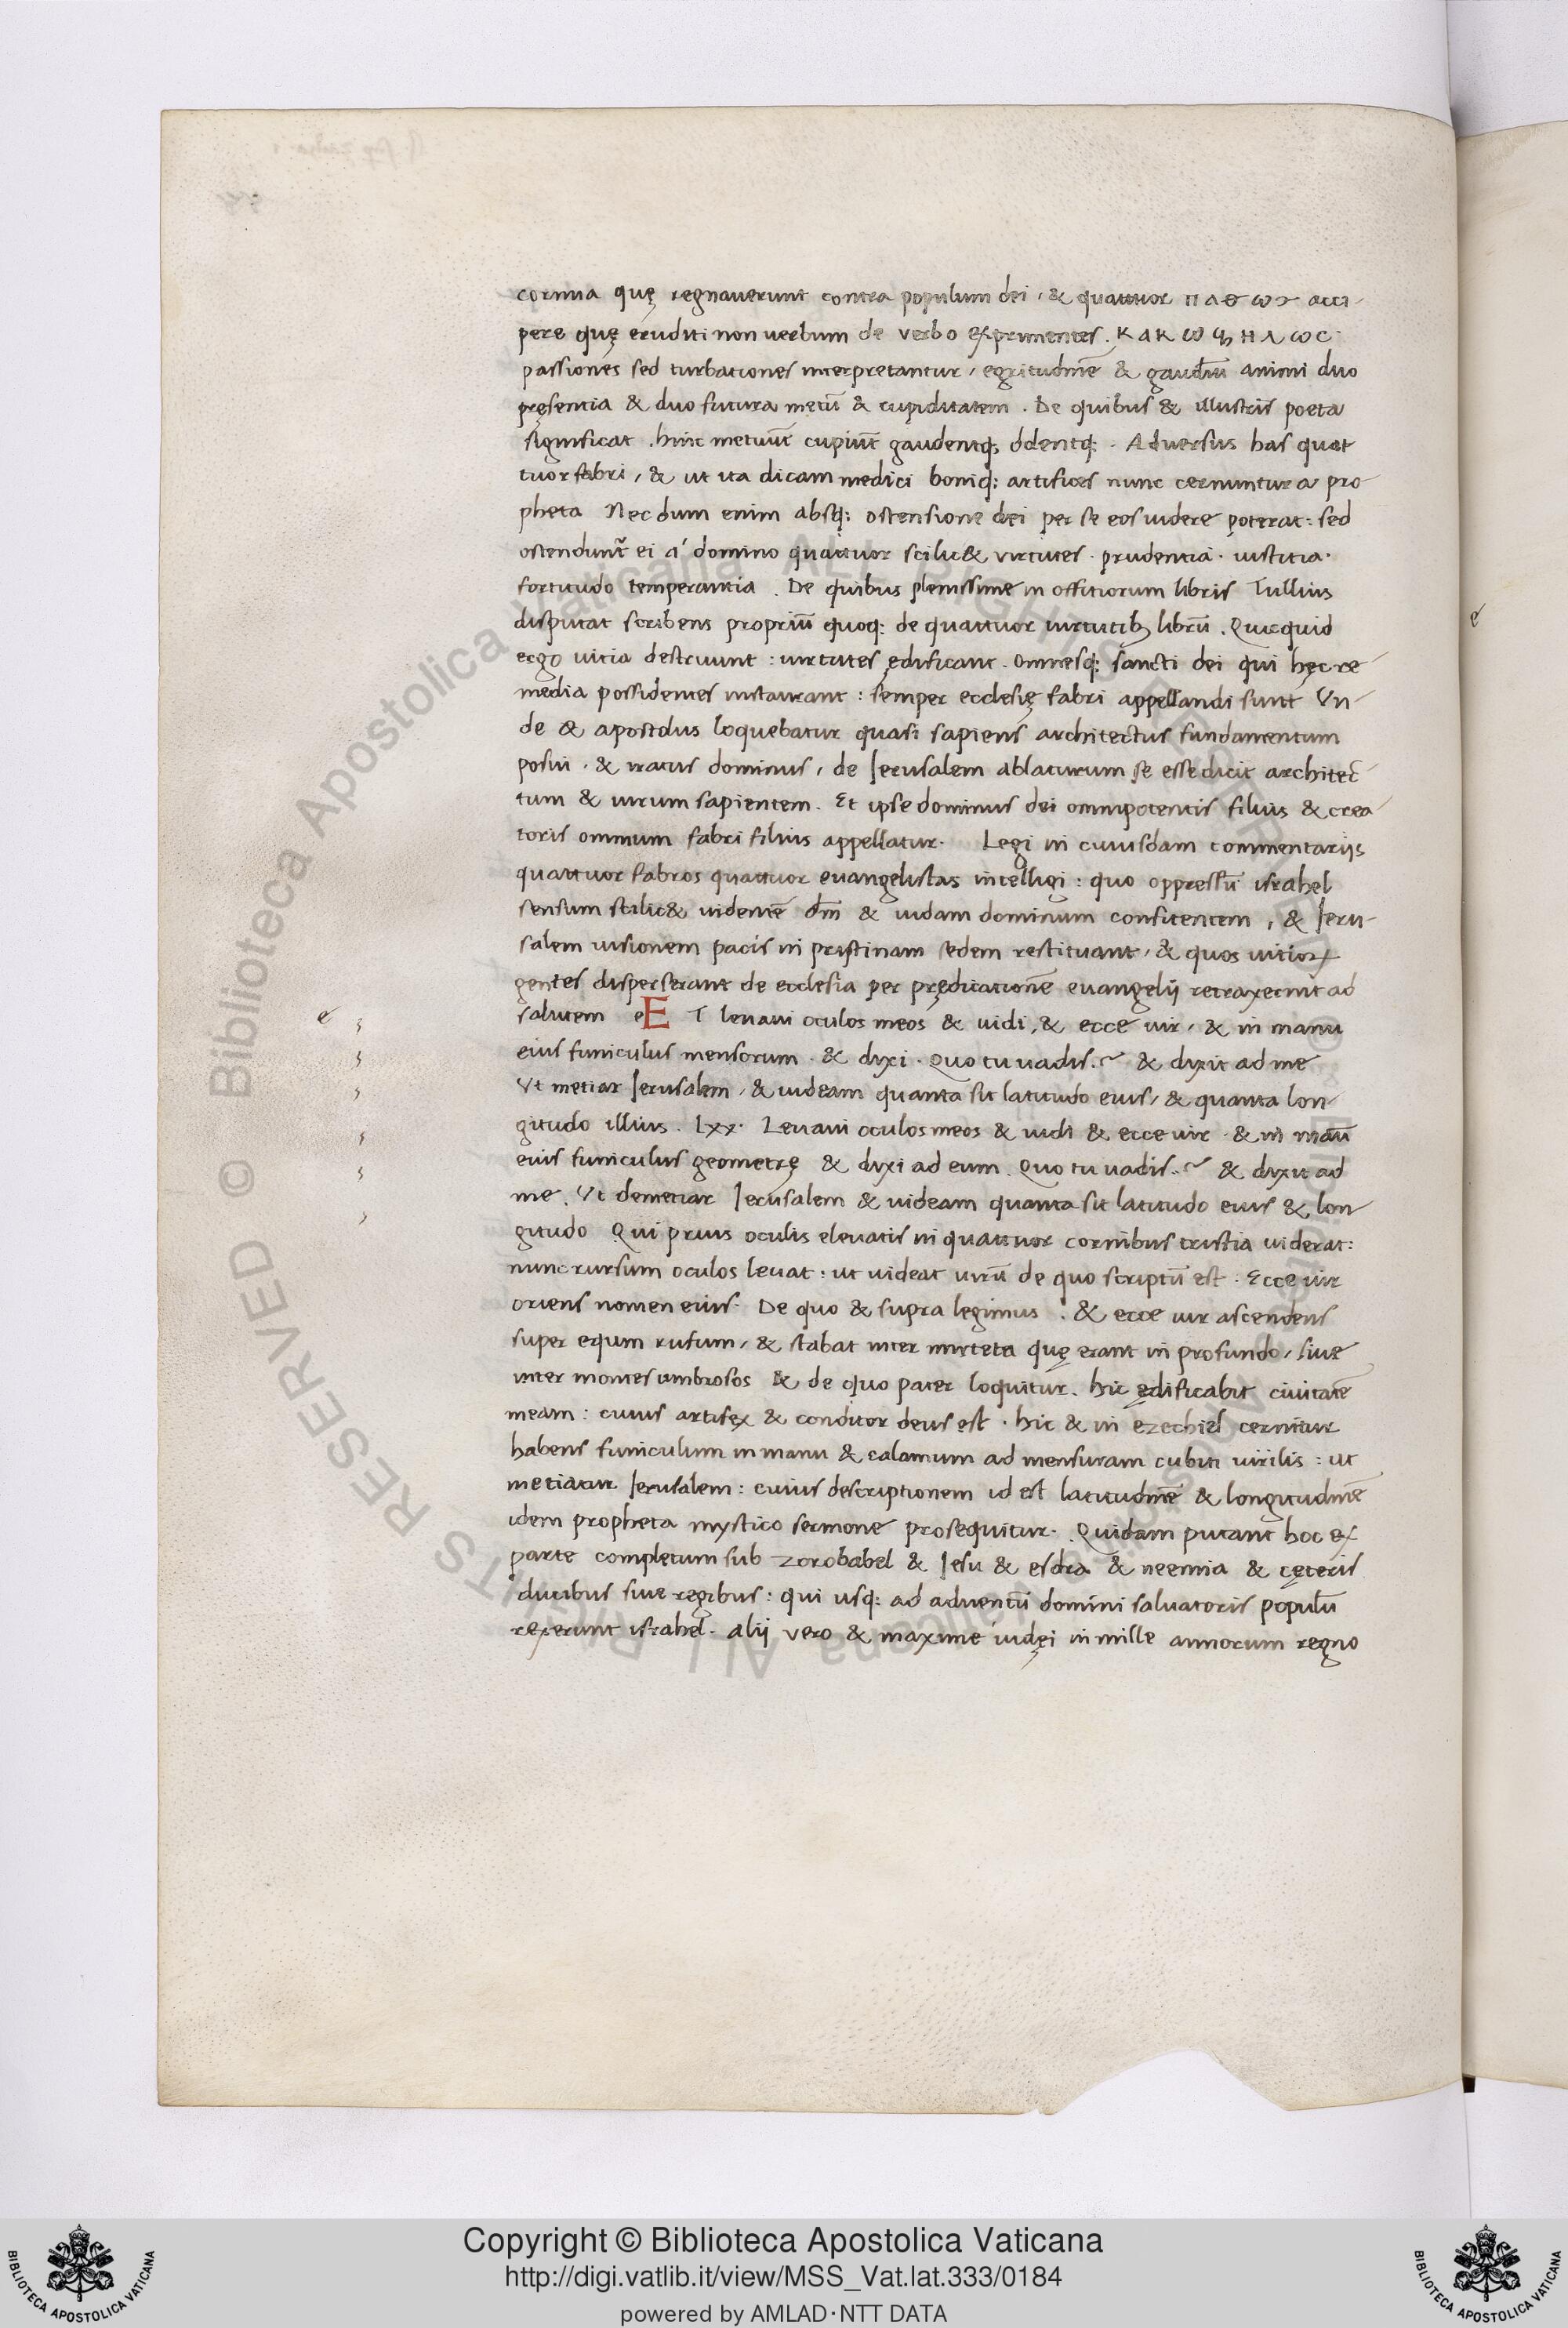 cornua quę regnauerunt contra populum dei, & quattuor παθων acci-
pere quę eruditi non uerbum de verbo exprimentes. ΚΑΚωϞΗΛωC.
passiones sed turbationes interpretantur, egritudinē & gaudiū animi duo
pręsentia & duo futura metū & cupiditatem. De quibus & illustris poeta
significat. hinc metuūt cupiūt gaudentq; dolentq;. Aduersus has quat
tuor fabri, & ut ita dicam medici boniq; artifices nunc cernuntur a pro-
pheta Nec dum enim absq; ostensione dei per se eos uidere poterat: sed
ostendunt̃ ei á domino quattuor scilic& virtutes. prudentia. iustitia.
fortitudo temperantia. De quibus plenissime in offitiorum libris Tullius
disputat scribens propriū quoq; de quattuor uirtutibꝫ librū. Quicquid
ergo uitia destruunt: uirtutes ędificant. Omnesq; sancti dei qui hęc re-
media possidentes instaurant: semper ecclesię fabri appellandi sunt Vn-
de & apostolus loquebatur quasi sapiens architectus fundamentum
posui. & iratus dominus, de Jerusalem ablaturum se esse dicit architec-
tum & uirum sapientem. Et ipse dominus dei omnipotentis filius & crea-
toris omnium fabri filius appellatur. Legi in cuiusdam commentarijs
quattuor fabros quattuor euangelistas intelligi: quo oppressū israhel
sensum scilic& uidentē dm̄ & iudam dominum confitentem, & Jeru-
salem uisionem pacis in pristinam sedem restituant, & quos uitioꝝ
gentes disperserant de ecclesia per prędicationē euangelij retraxerint ad
salutem eET leuaui oculos meos & uidi, & ecce uir, & in manu
eius funiculus mensorum. & dixi. Quo tu uadis.~ & dixit ad me
Vt metiar Jerusalem, & uideam quanta sit latitudo eius, & quanta lon-
gitudo illius. Lxx. Leuaui oculos meos & uidi & ecce uir. & in manū
eius funiculus geometrę & dixi ad eum. Quo tu uadis.~ & dixit ad
me. Vt demetiar Jerusalem & uideam quanta sit latitudo eius & lon-
gitudo Qui prius oculis eleuatis in quattuor cornibus tristia uiderat:
nunc rursum oculos leuat: ut uideat uirū de quo scriptū est. Ecce uir
oriens nomen eius. De quo & supra legimus. & ecce uir ascendens
super equm rufum, & stabat inter mirteta quę erant in profundo, siue
inter montes umbrosos & de quo pater loquitur. hic ędificabit ciuitatē
meam: cuius artifex & conditor deus est. hic & in ezechiel cernitur
habens funiculum in manu & calamum ad mensuram cubiti uirilis: ut
metiatur Jerusalem: cuius descriptionem id est latitudinē & longitudinē
idem propheta mystico sermone prosequitur. Quidam putant hoc ex
parte completum sub zorobabel & Jesu & esdra & neemia & cęteris
ducibus siue regibus: qui usq; ad aduentū domini saluatoris populū
rexerunt israhel. alij vero & maxime iudęi in mille annorum regno
e
e
© Biblioteca Apostolica Vaticana ALL RIGHTS RESERVED
Copyright © Biblioteca Apostolica Vaticana
http://digi.vatlib.it/view/MSS_Vat.lat.333/0184
powered by AMLAD·NTT DATA
BIBLIOTECA APOSTOLICA VATICANA
BIBLIOTECA APOSTOLICA VATICANA